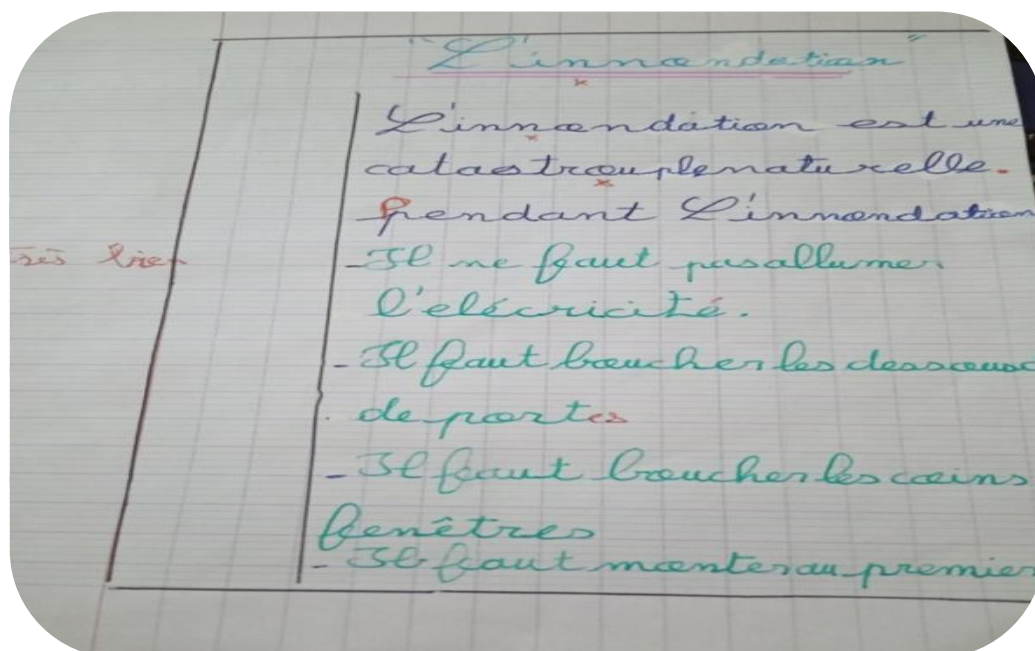 "L'innondation"
L'innondation est une
catastrouplenaturelle.
Pendant L'innondation
très bien
-Il ne faut pasallumer
l'elécricité.
-Il faut boucher les dessous
de portes
-Il faut boucher les coins
fenêtres
-Il faut monter au premier